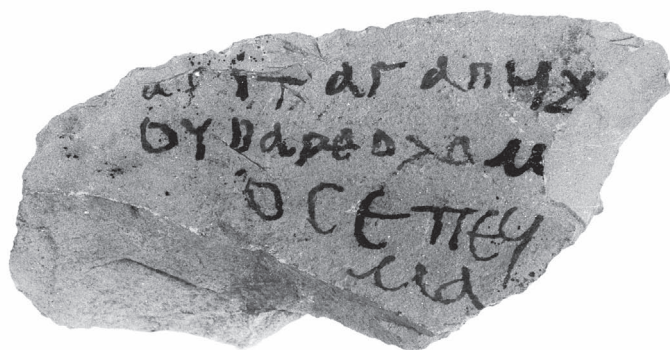 ⲁⲣⲓⲧⲁⲅⲁⲡⲏϫ
ⲟⲩⲃⲁⲣⲉ
ⲟⲥⲉⲡⲉⲩ
ⲙⲁ